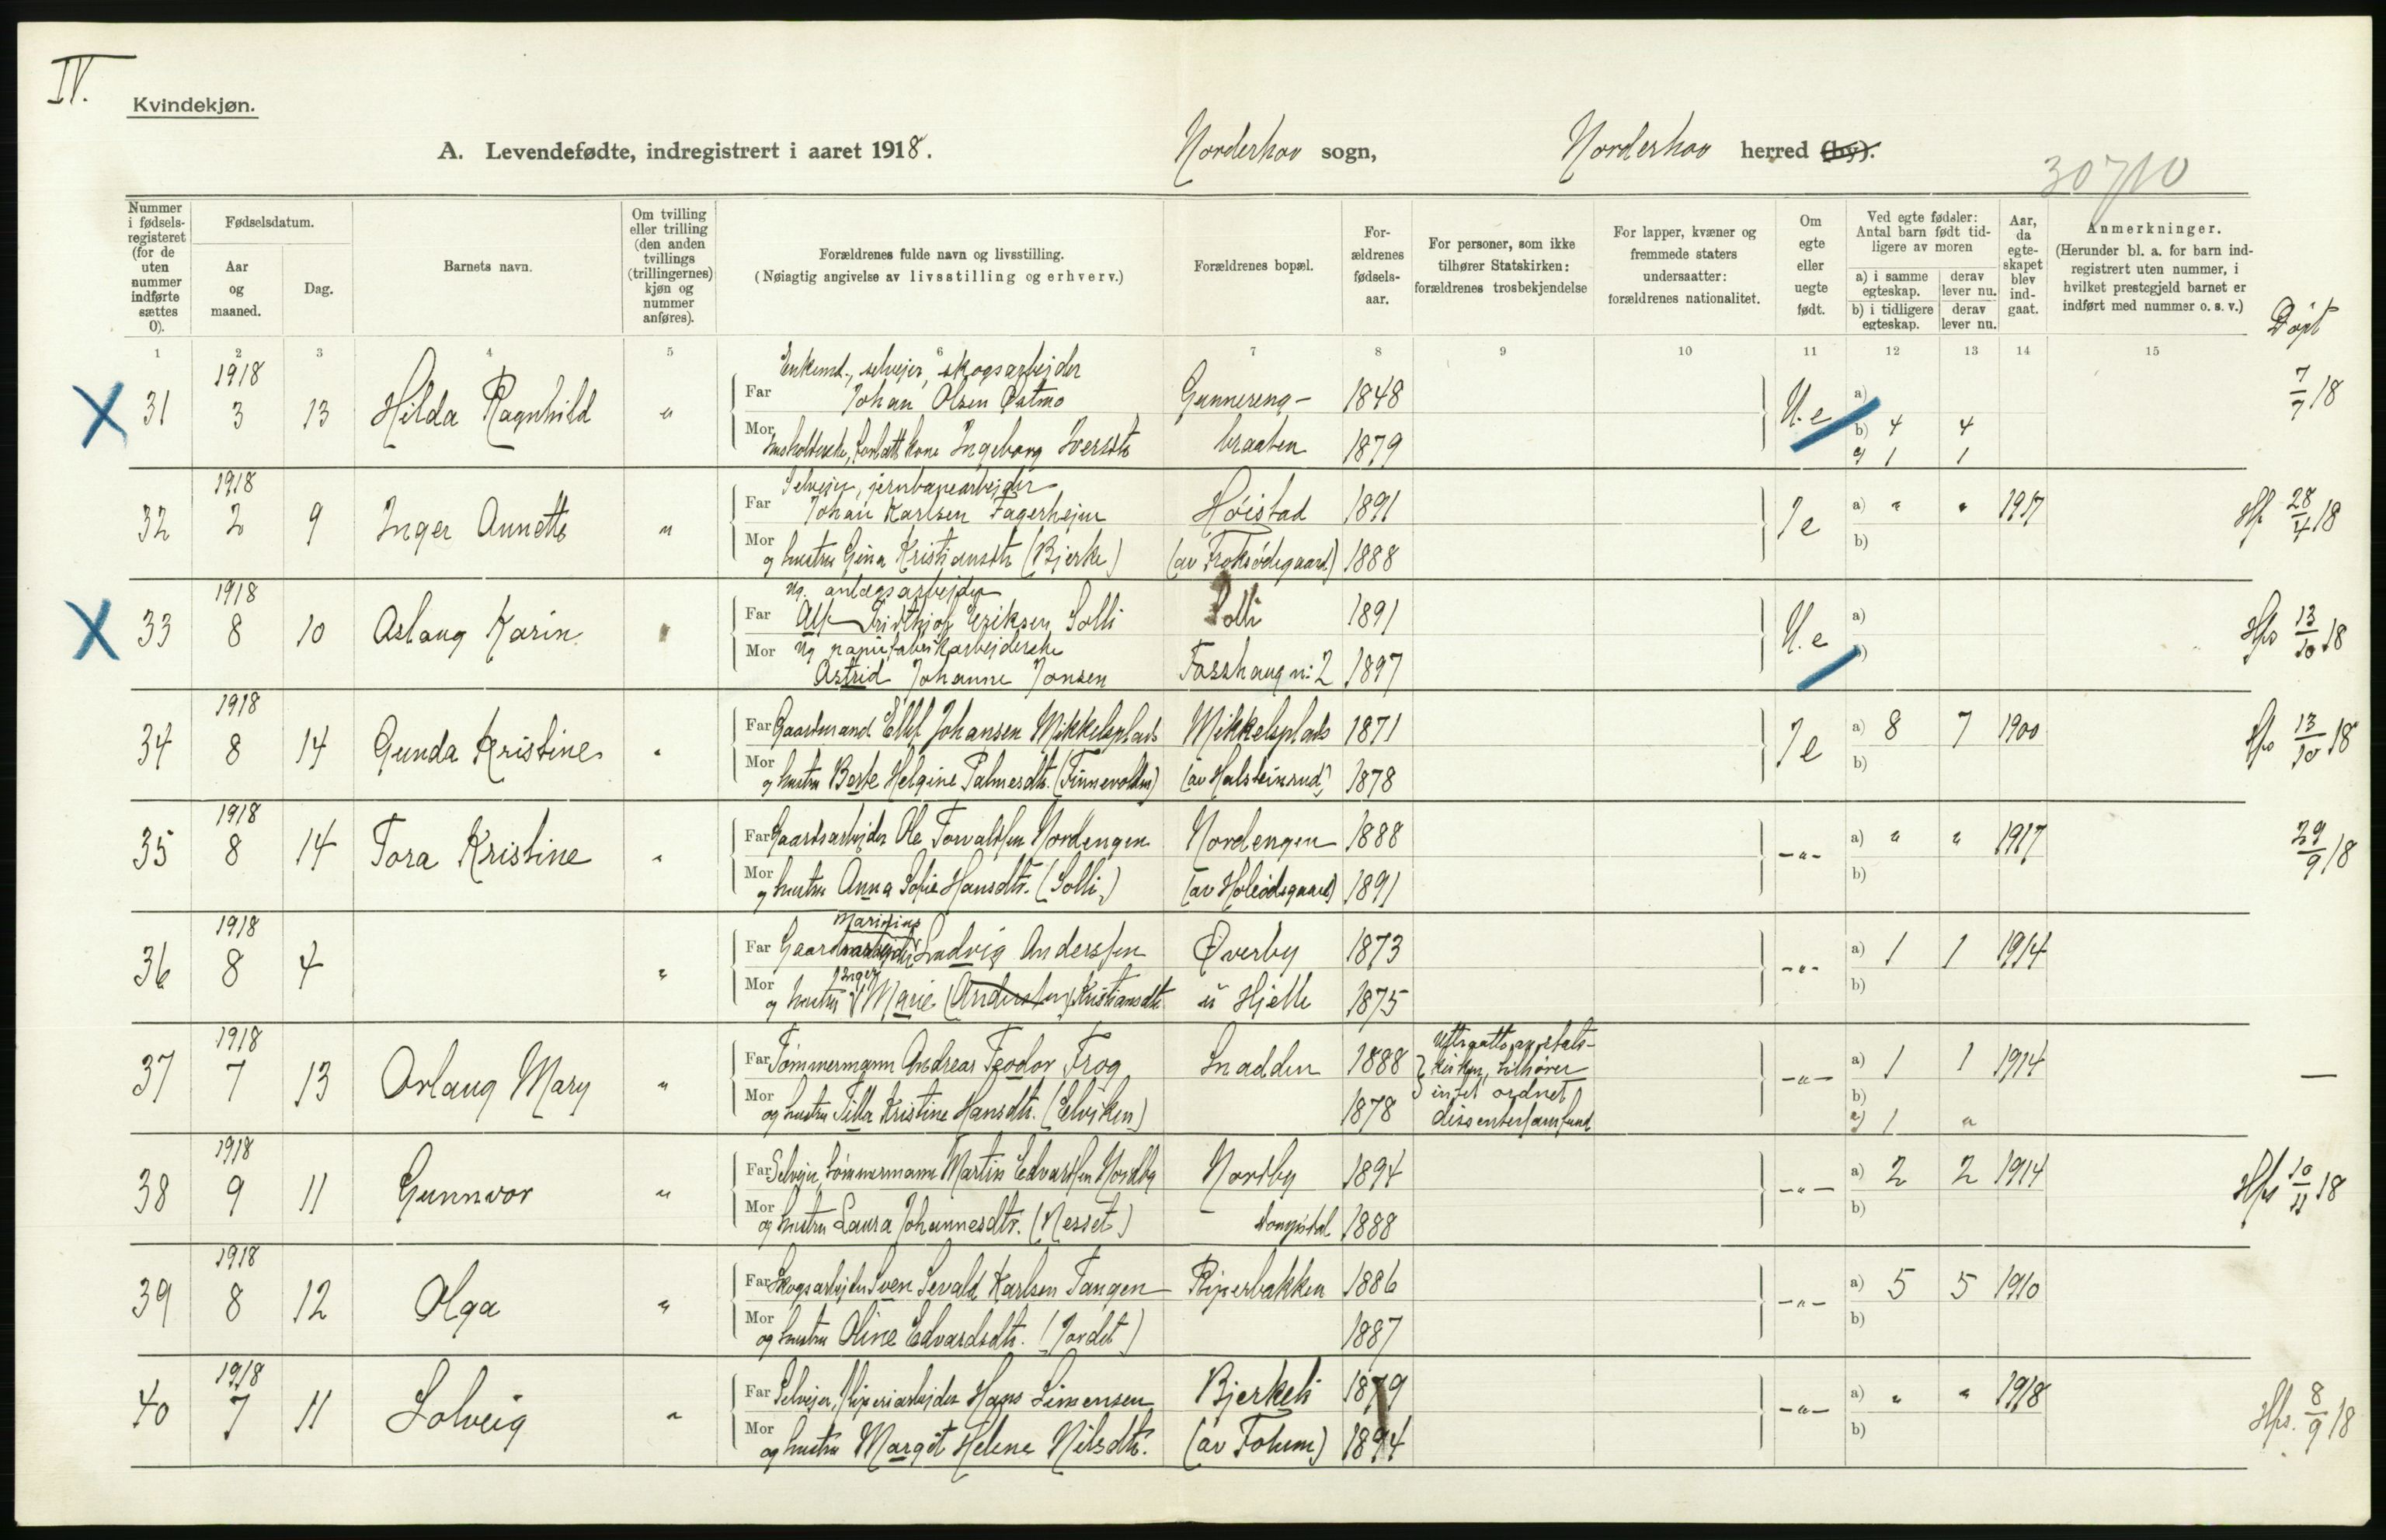 IV.
Kvindekjøn.
A. Levendefødte, indregistrert i aaret 1918.
Norderhov sogn,
Norderhov herred (by).
30710
Nummer i fødsels-registeret (for de uten nummer indførte sættes 0).
Fødselsdatum.
Aar og maaned.
Dag.
Barnets navn.
Om tvilling eller trilling (den anden tvillings (trillingernes) kjøn og nummer anføres).
Forældrenes fulde navn og livsstilling.
(Nøiagtig angivelse av livsstilling og erhverv.)
Forældrenes bopæl.
For-ældrenes fødsels-aar.
For personer, som ikke tilhører Statskirken: forældrenes trosbekjendelse
For lapper, kvæner og fremmede staters undersaatter: forældrenes nationalitet.
Om egte eller uegte født.
Ved egte fødsler: Antal barn født tid-ligere av moren
a) i samme egteskap.
derav lever nu.
b) i tidligere egteskap.
derav lever nu.
Aar, da egte-skapet blev ind-gaat.
Anmerkninger.
(Herunder bl. a. for barn ind-registrert uten nummer, i hvilket prestegjeld barnet er indført med nummer o. s. v.)
Døpt
1 2 3 4 5 6 7 8 9 10 11 12 13 14 15
X 31 1918 3 13 Hilda Ragnhild "
Enkemd., selveier, skogsarbejder
Far Johan Olsen Østmo Gunnereng- 1848 U.e a) 7/7 18
Mor Ingeborg Iversdtr braaten 1879 b) 4 4
1 1
32 1918 2 9 Inger Annette "
Selveier, jernbanearbejder
Far Johan Karlsen Fagerheim Høistad 1891 Ie a) " " 1917 28/4 18
Mor og hustru Gina Kristiansdtr (Bjerke) 1888 b)
X 33 1918 8 10 Aslaug Karin
Ug. anlægsarbejder
Far Alf Fridthjof Eriksen Solli Solli 1891 U.e a) 13/10 18
Mor Ug papirfabrikarbejderske
Astrid Johanne Jonsen Fosshaug n: 2 1897 b)
34 1918 8 14 Gunda Kristine "
Far Gaardmand Ellef Johansen Mikkelsplads Mikkelsplads 1871 Ie a) 8 7 1900 13/10 18
Mor og hustru Berte Helgine Palmesdtr. (Finnevolden) (av Halsteinrud) 1878 b)
35 1918 8 14 Tora Kristine "
Far Gaardsarbejder Ole Torvaldsen Nordengen Nordengen 1888 -"- a) " " 1917 29/9 18
Mor og hustru Anna Sofie Hansdtr. (Solli) 1891 b)
36 1918 8 4 "
Marinius
Far Ludvig Anderssen Øverby 1873 -"- a) 1 1 1914
Inger
Mor og hustru Marie (Anderssen) Kristiansdtr. u Hjelle 1875 b)
37 1918 7 13 Aslaug Mary "
Far Tømmermann Andreas Teodor Frog Snadden 1888 Uttraatt av stats-kirken, tilhører intet ordnet dissentersamfund -"- a) 1 1 1914 —
Mor og hustru Tilla Kristine Hansdtr. (Elviken) 1878 b)
1 "
38 1918 9 11 Gunnvor "
Far Selveier, tømmermann Martin Edvardsen Nordby Nordby 1894 -"- a) 2 2 1914 10/11 18
Mor og hustru Laura Johannesdtr. (Nesset) 1888 b)
39 1918 8 12 Olga "
Far Skogsarbejder Sven Servald Karlsen Tangen Piperbakken 1886 -"- a) 5 5 1910
Mor og hustru Oline Edvardsdtr. (Jordet) 1887 b)
40 1918 7 11 Solveig "
Far Selveier, sliperiarbejder Hans Simensen Bjerkeli 1879 -"- a) " " 1918 8/9 18
Mor og hustru Margit Helene Nilsdtr. 1894 b)